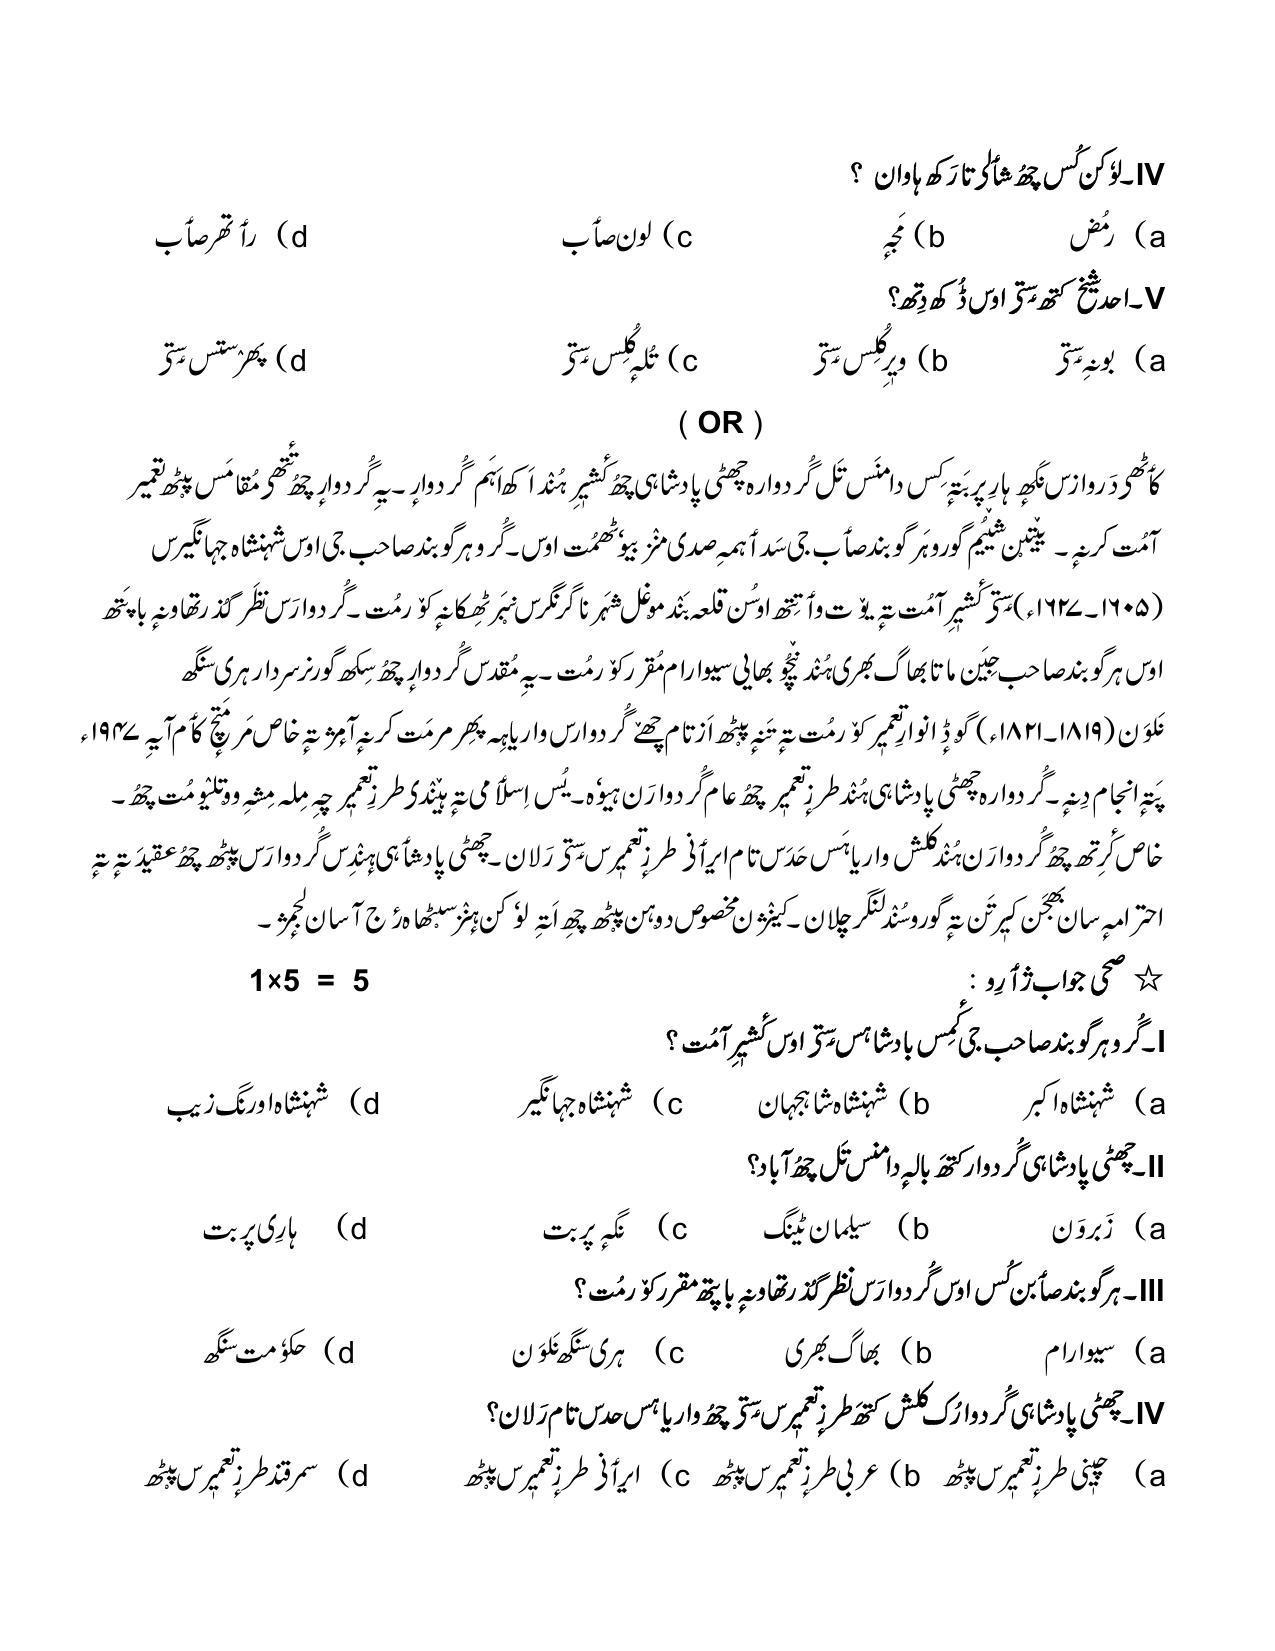 IV۔لوٗکن کُس چھُ شٲلۍ تارَکھ ہاوان ؟
a) رمُض b) مَجہٕ c) لون صٲب d) رٲتھر صٲب
V۔احد شیٚخ کتھ سٕتۍ اوس ڈُکھ دِتھ؟
a) بونہِ سٕتۍ b) ویٖرِ کُلِس سٕتۍ c) تُلہٕ کُلِس سٕتۍ d) پھرٛستس سٕتۍ
( OR )
کٲٹھۍ دَروازس نکھہٕ ہارِ پربَتہٕ کِس دامنَس تَل گُردوارہ چھٹی پادشاہی چھُ کٔشیٖرِ ہُنٛد اَکھ اہَم گُردوارٕ۔یہِ گُردوارٕ چھُ تٔتھۍ مُقامَس پیٚٹھ تعمیر
آمُت کرنہٕ ۔ ییٚتیٚن شیٚیُم گورو ہَرگوبند صٲب جی سَدٲہمہِ صدی منٛز بیوٗٹھمُت اوس۔گُرو ہرگوبند صاحب جی اوس شہنشاہ جہانگیرس
(۱۶۰۵۔۱۶۲۷ء)سٕتۍ کٔشیٖرِ آمُت تہٕ یوٚت وٲتِتھ اوسُن قلعہ بَنٛد موغل شہَر ناگرنگرس نیٚبَر ٹھِکانہٕ کوٚرمُت ۔گُردوارَس نظَر گُذر تھاونہٕ باپَتھ
اوس ہرگوبند صاحب جِیَن ماتا بھاگ بھری ہُنٛد نیٚچُو بھایی سیوارام مُقرر کوٚرمُت ۔یہِ مُقدس گُردوارٕ چھُ سِکھ گورنر سردار ہری سنگھ
نَلوَن(۱۸۱۹۔۱۸۲۱ء) گوڈٕ انوارِ تعمیٖر کوٚرمُت تہٕ تَنہٕ پیٚٹھٕ اَز تام چھےٚ گُردوارس واریاہِہ پھِر مرمَت کرنہٕ آمٕژ تہٕ خاص مَرمَتٕچ کٲم آیہِ ۱۹۴۷ء
پَتہٕ انجام دِنہٕ۔گُردوارہ چھٹی پادشاہی ہُنٛد طرزِ تعمیٖر چھُ عام گُردوارَن ہیوٗہ۔یُس اِسلٲمی تہٕ ہِنٛدی طرزِ تعمیٖر چہِ مِلہ مِشہِ ووتلیوٚمُت چھُ ۔
خاص کٔرِتھ چھُ گُردوارَن ہُنٛد کلش واریاہَس حَدَس تام ایرٲنی طرزِ تعمیٖرس سٕتۍ رَلان ۔چھٹی پادشٲہی ہِنٛدِس گُردوارَس پیٚٹھ چھُ عقیدَتہٕ تہٕ
احترامہٕ سان بھَجَن کیٖرتَن تہٕ گوروسُنٛد لنگر چلان ۔کیٚنٛژن مخصوص دوہن پیٚٹھ چھِ اَتہِ لوٗکن ہٕنٛز سیٚٹھاہ رٔژ آسان لٔجمٕژ ۔
☆ صحی جواب ژٲرِو : 1×5 = 5
I۔گُرو ہرگوبند صاحب جی کٔمِس بادشاہس سٕتۍ اوس کٔشیٖرِ آمُت ؟
a) شہنشاہ اکبر b) شہنشاہ شاہجہان c) شہنشاہ جہانگیر d) شہنشاہ اورنگ زیب
II۔چھٹی پادشاہی گُردوار کتھَ بالہٕ دامنس تَل چھُ آباد؟
a) زَبروَن b) سلیمان ٹینگ c) نگہٕ پربت d) ہارِی پربت
III۔ہرگوبند صٲبن کُس اوس گُردوارَس نظَر گُذر تھاونہٕ باپتھ مقرر کوٚرمُت ؟
a) سیوارام b) بھاگ بھری c) ہری سنگھ نَلوَن d) حکوٗمت سنگھ
IV۔چھٹی پادشاہی گُردوارُک کلش کتھَ طرزِ تعمیٖرس سٕتۍ چھُ واریاہس حدس تام رَلان؟
a) چیٖنی طرزِ تعمیٖرس پیٚٹھ b) عربی طرزِ تعمیٖرس پیٚٹھ c) ایرٲنی طرزِ تعمیٖرس پیٚٹھ d) سمرقند طرزِ تعمیٖرس پیٚٹھ